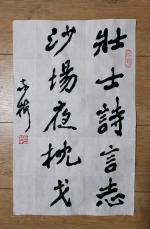 壯士詩言志
沙場夜枕戈